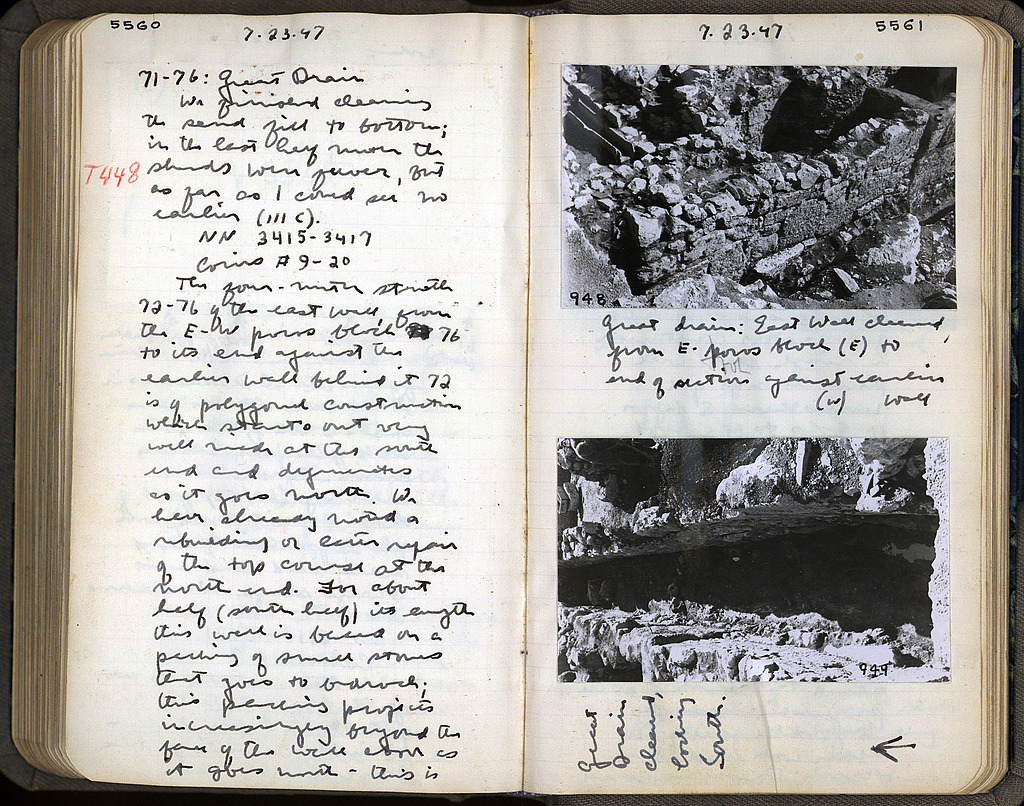 5560
7.23.47
71-76: Great Drain
We finished cleaning
the sand fill to bottom;
in the last half meter the
T448
sherds were fewer, but
as far as I could see no
earlier (III C).
NN 3415-3417
Coins # 9-20
The four-meter stretch
72-76 of the east wall, from
the E-W poros block 76
to its end against the
earlier wall behind it 72
is of polygonal construction
which starts out very
well made at the south
end and degenerates
as it goes north. We
have already noted a
rebuilding or later repair
of the top course at the
north end. For about
half (south half) its length
this wall is based on a
packing of small stones
that goes to bedrock;
this packing projects
increasingly beyond the
face of the wall above as
it goes north - this is
7.23.47
5561
948
Great drain: East Wall cleaned,
from E- poros block (E) to
end of section against earlier
(W) wall
949
Great
Drain
cleaned,
looking
South.